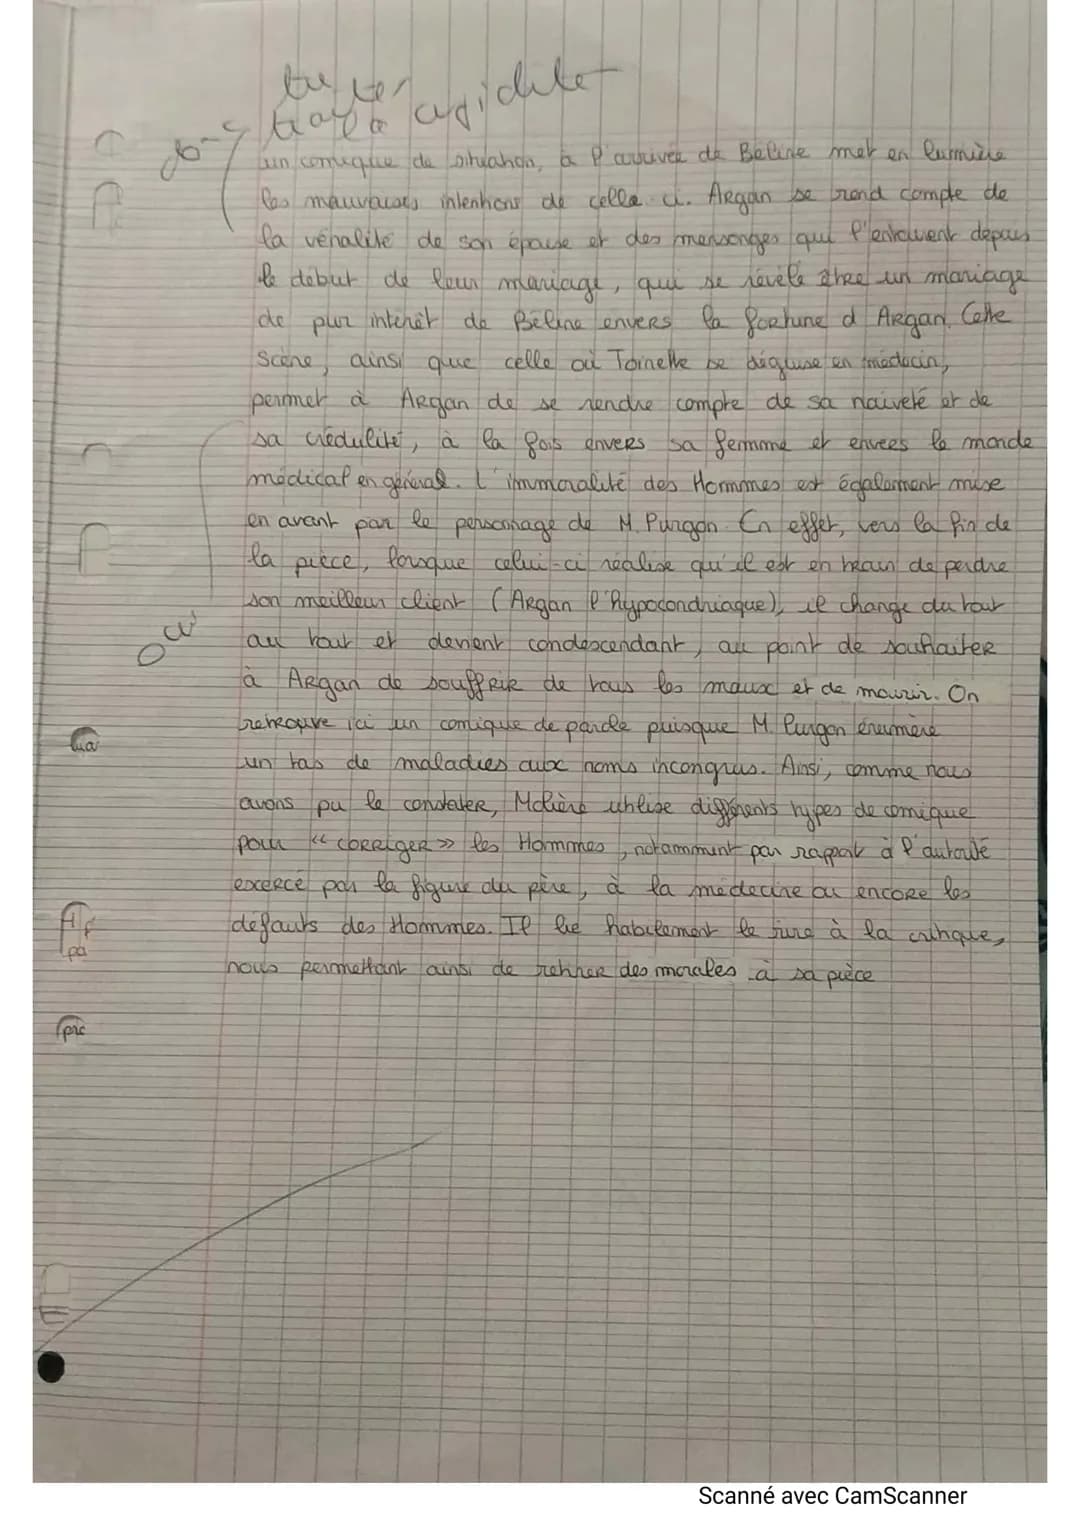 avidité
un comique de situation, à l'arrivée de Béline met en lumière
les mauvaises intentions de celle ci. Argan se rend compte de
la vénalité de son épouse et des mensonges qui l'entourent depuis
le début de leur mariage, qui se révèle être un mariage
de pur interêt de Béline envers la fortune d Argan. Cette
scène, ainsi que celle où Toinette se déguise en médecin,
permet à Argan de se rendre compte de sa naïveté et de
sa crédulité, à la fois envers sa femme et envers le monde
médical en général. L'immoralité des Hommes est également mise
en avant par le personnage de M. Purgon. En effet, vers la fin de
la pièce, lorsque celui-ci réalise qu'il est en train de perdre
son meilleur client (Argan l'hypocondriaque), il change du tout
au tout et devient condescendant, au point de souhaiter
Oui
à Argan de souffrir de tous les maux et de mourir. On
retrouve ici un comique de parole puisque M. Purgon énumère
un tas de maladies aux noms incongrus. Ainsi, comme nous
avons pu le constater, Molière utilise différents types de comique
pour « corriger » les Hommes, notamment par rapport à l'autorité
excercé par la figure du père, à la médecine ou encore les
défauts des Hommes. Il lie habilement le rire à la critique,
nous permettant ainsi de retirer des morales à sa pièce
Scanné avec CamScanner